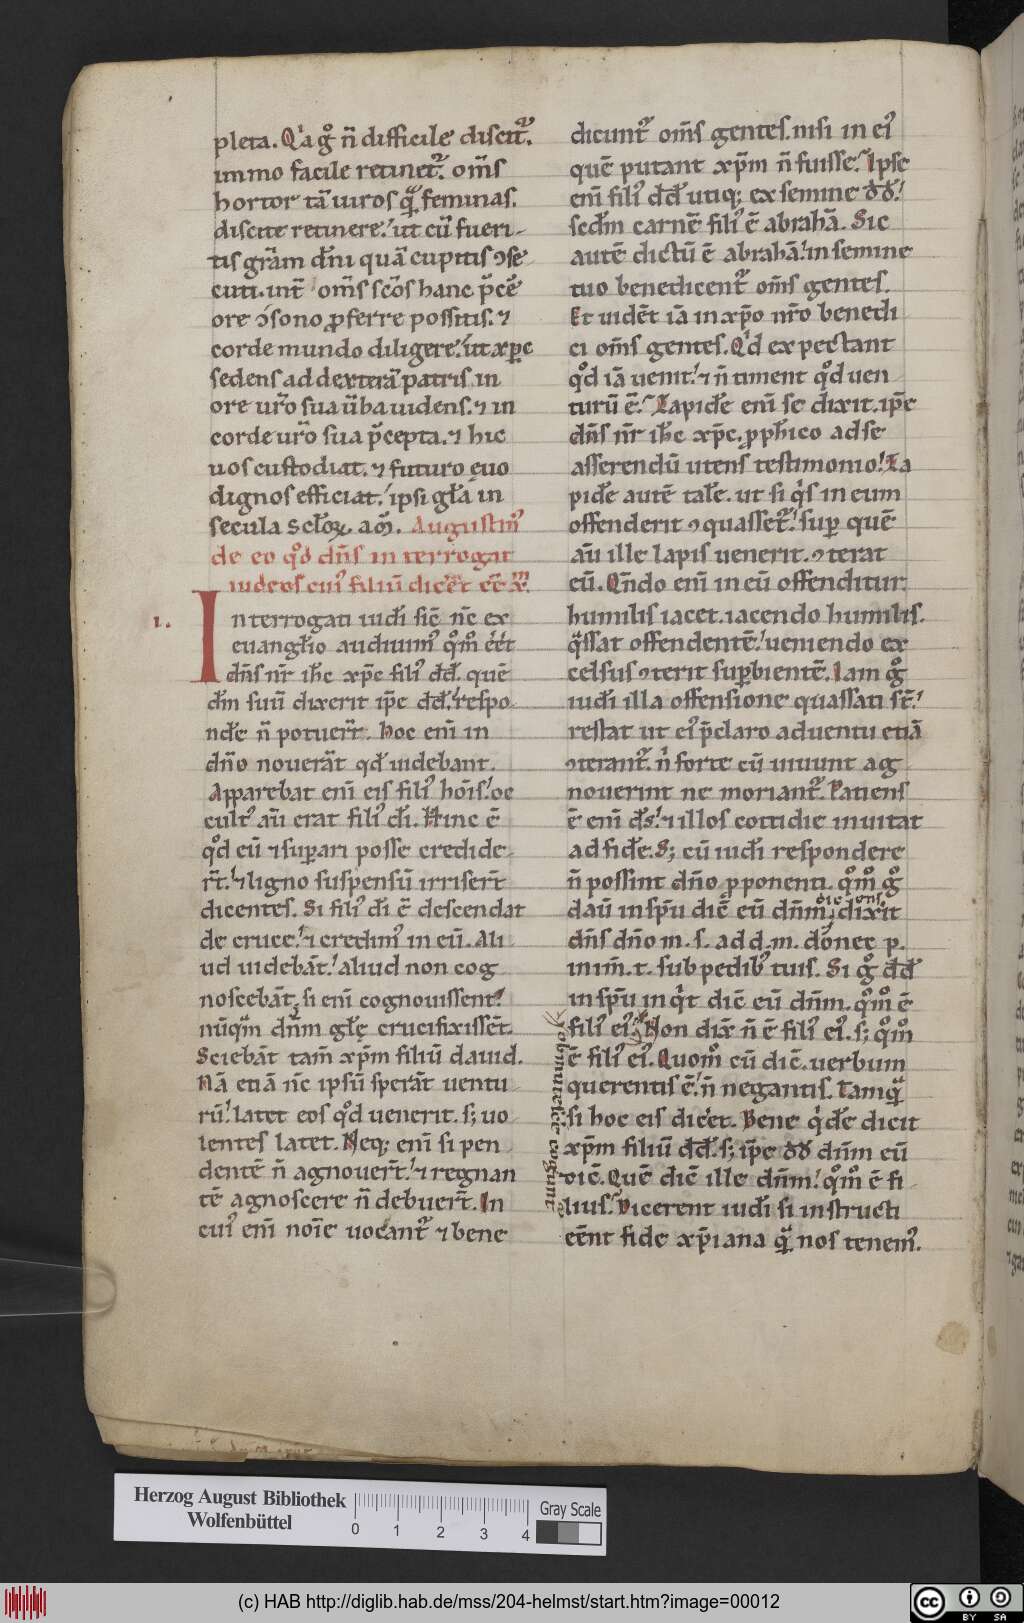 pleta. Qͥa gͦ n̄ difficile discitᷣ.
immo facile retinetᷣ. om̄s
hortor tā uiros qͣ feminas.
discite retinere. ut cū fueri-
tis grām dn̄i quā cupitis ↄse
cuti. int̄ om̄s scōs hanc p̄ce
ore ↄsono ꝓferre possitis. ⁊
corde mundo diligere. ut xp̄c
sedens ad dexterā patris in
ore ur̄o sua ūba uidens. ⁊ in
corde ur̄o sua p̄cepta. ⁊ hic
uos custodiat. ⁊ futuro ęuo
dignos efficiat. ipsi gl̄a in
secula scl̄oꝝ. am̄. Augustinꝰ
de eo qͦd dn̄s in terrogat
iudeos cuiꝰ filiū dicēt ēē xp̄m.
I.
Interrogati iud̄i sic̄ nc̄ ex
euangl̄io audiuimꝰ qͦm̊ éét
dn̄s nr̄ ih̄c xp̄c filiꝰ dd̄. quē
d̄m suū dixerit ip̄e dd̄. respo
nde n̄ potuer̄t. hoc eni in
dn̄o nouerāt qd̄ uidebant.
Apparebat eni eis filiꝰ hōis. oc
cultꝰ aū erat filiꝰ d̄i. Hinc ē
qͦd eū ⁊ suꝑari posse credide-
rt̄. ⁊ ligno suspensū irriser̄t
dicentes. Si filiꝰ d̄i ē descendat
de cruce. ⁊ credimꝰ in eū. Ali
ud uidebāt. aliud non cog
noscebāt. si eni cognouissent.
nūqͣm dn̄m glę̄ crucifixissēt.
Sciebāt tam̄ xp̄m filiū dauid.
Nā etiā nc̄ ipsū sperāt uentu
rū. latet eos qͦd uenerit. s; uo
lentes latet. Neq; eni si pen
dentē n̄ agnouer̄t. ⁊ regnan
tē agnoscere n̄ debuer̄t. In
cuiꝰ eni noīe uocantᷣ ⁊ bene
dicuntᷣ om̄s gentes. nisi in eiꝰ
quē putant xp̄m n̄ fuisse. Ipse
eni filiꝰ dd̄ utiq; ex semine dd̄.
scd̄m carnē filiꝰ ē abrahā. Sic
autē dictū ē abrahā. in semine
tuo benedicentᷣ om̄s gentes.
Et uidēt iā in xp̄o nr̄o benedi
ci om̄s gentes. Qͥd expectant
qͦd iā uenit. ⁊ n̄ timent qͦd uen
turū ē. Lapidē eni se dixit. ip̄e
dn̄s nr̄ ih̄c xp̄c. ꝓph̄ico ad se
asserendū utens testimonio. La
pidē autē talē. ut si qͥs in eum
offenderit ↄquassetᷣ. suꝑ quē
aū ille lapis uenerit. ↄterat
eū. Qn̄do eni in eū offenditur
humilis iacet. iacendo humilis.
qͣssat offendentē. ueniendo ex
celsus ↄterit suꝑbientē. Iam gͦ
iud̄i illa offensione quassati st̄.
restat ut eiꝰ p̄claro aduentu etiā
ↄterantᷣ. nͥ forte cū uiuunt ag
nouerint ne moriantᷣ. Patiens
ē eni d̄s. ⁊ illos cottidie inuitat
ad fidē. S; cū iud̄i respondere
n̄ possint dn̄o ꝓponenti. qͦm̊ gͦ
dic̄ ens.
daū in sp̄u dic̄ eū dn̄m, dixit
dn̄s dn̄o m. s. ad d. m. donec p.
inim̄. t. sub pedibꝰ tuis. Si gͦ dd̄
in sp̄u in qͥt dic̄ eū dn̄m. qͦm̊ ē
filiꝰ eiꝰ. Non dix̄ n̄ ē filiꝰ eiꝰ. s; qͦm̊
ē filiꝰ eiꝰ. Quom̊ cū dic̄. uerbum
querentis ē. n̄ negantis. Tamqͣ
si hoc eis dicet. Bene qͥdē dicit
xp̄m filiū dd̄. s; ip̄e dd̄ dn̄m eū
dic̄. Quē dic̄ ille dn̄m. qͦm̊ ē fi
lius. Dicerent iud̄i si instructi
eēnt fide xp̄iana qͣ nos tenemꝰ.
Herzog August Bibliothek
Wolfenbüttel
0 1 2 3 4
Gray Scale
(c) HAB http://diglib.hab.de/mss/204-helmst/start.htm?image=00012
cc BY SA